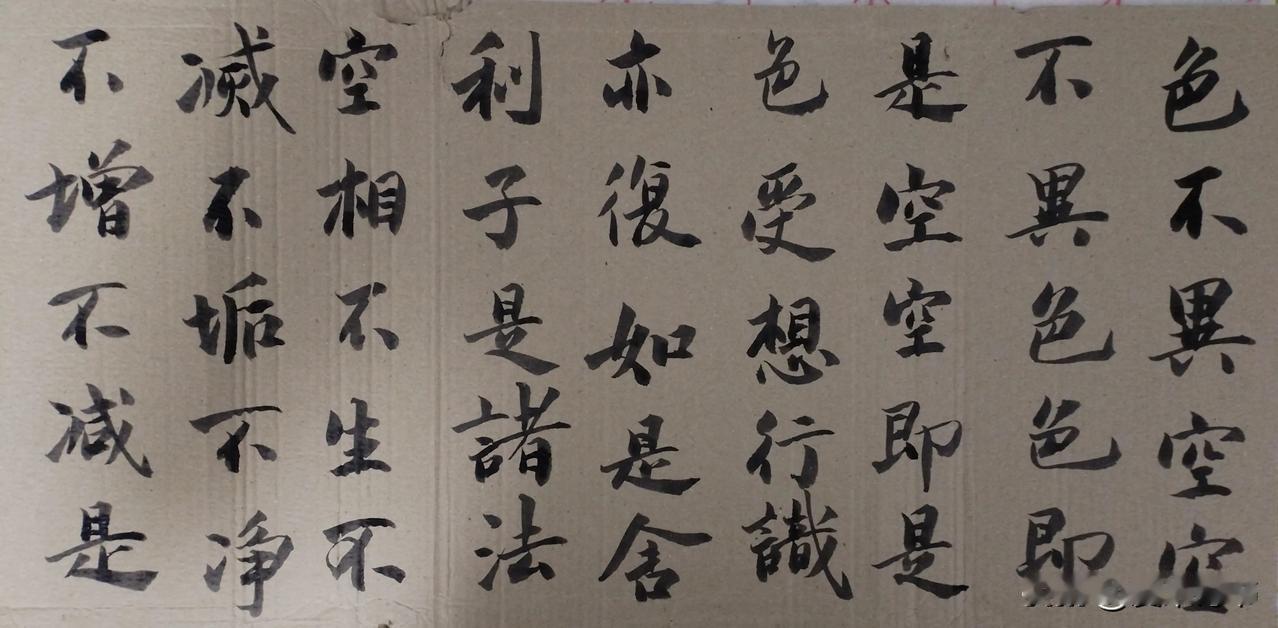 色不異空空
不異色色即
是空空即是
色受想行識
亦復如是舍
利子是諸法
空相不生不
滅不垢不净
不增不减是